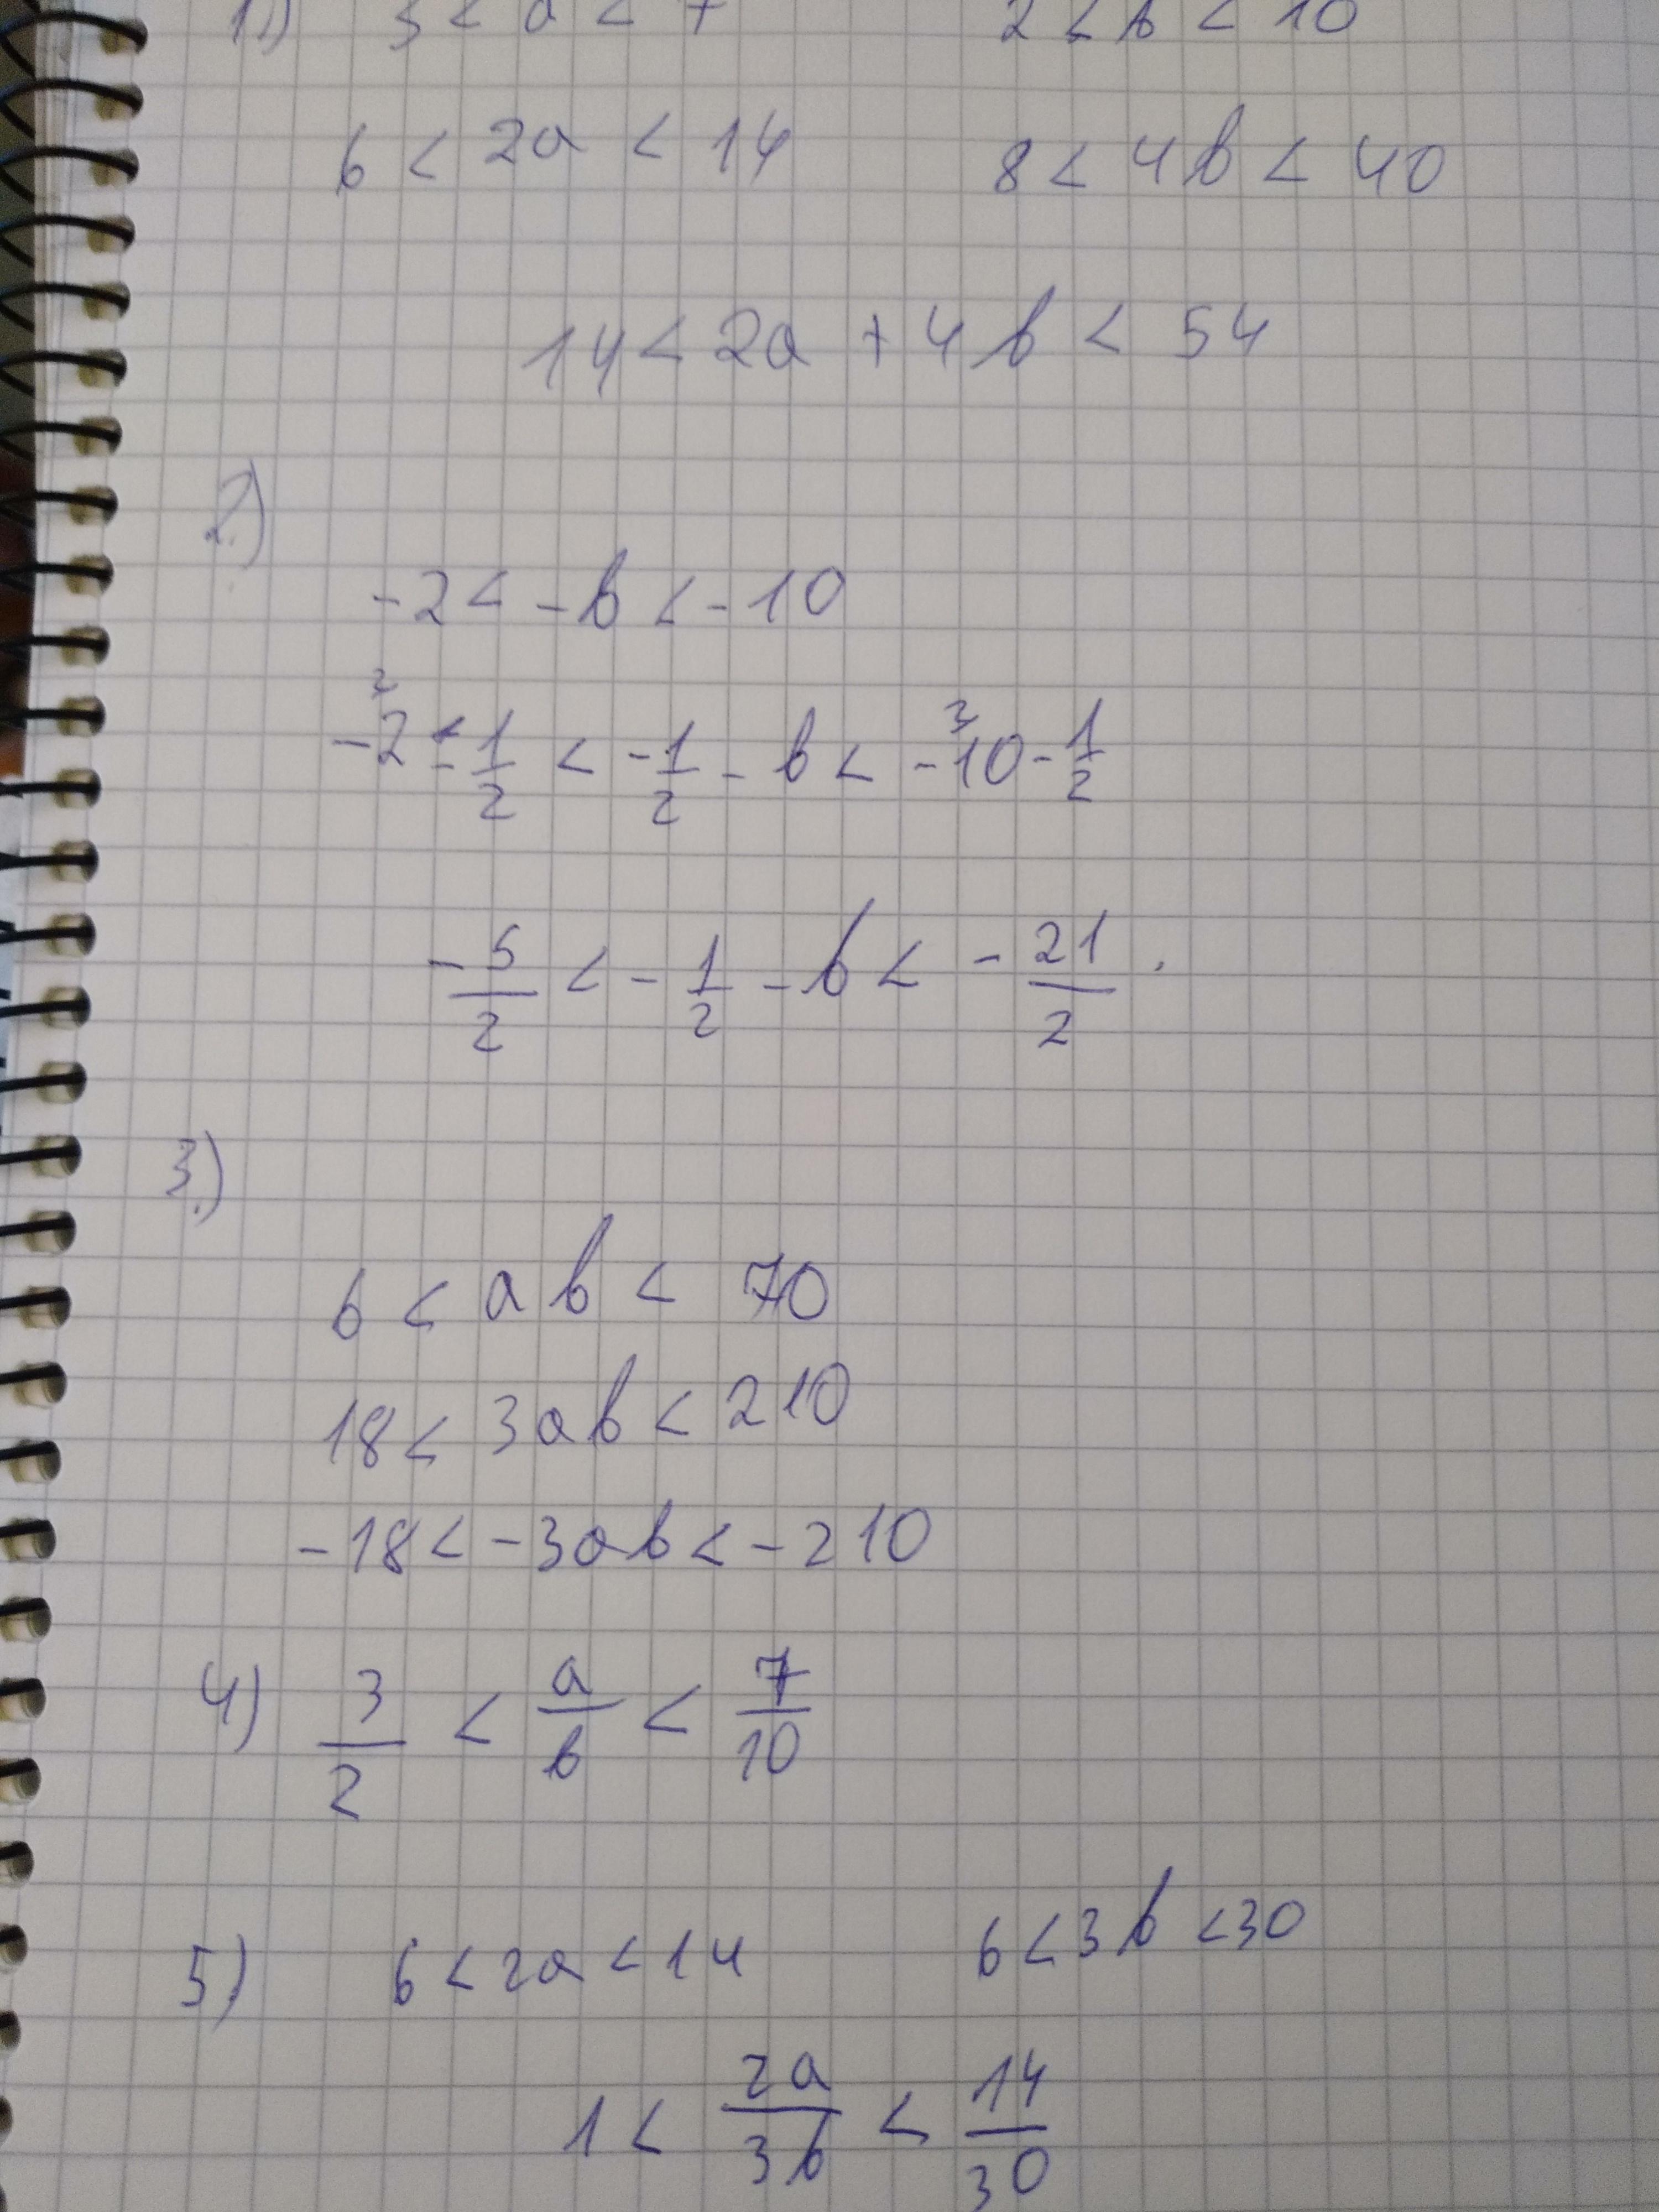 1.) 3 < a < 7 2 < b < 10
6 < 2a < 14 8 < 4b < 40
14 < 2a + 4b < 54
2.)
-2 < -b < -10
-2 - 1/2 < -1/2 - b < -10 - 1/2
-5/2 < -1/2 - b < -21/2.
3.)
6 < ab < 70
18 < 3ab < 210
-18 < -3ab < -210
4) 3/2 < a/b < 7/10
5) 6 < 2a < 14 6 < 3b < 30
1 < 2a/3b < 14/30